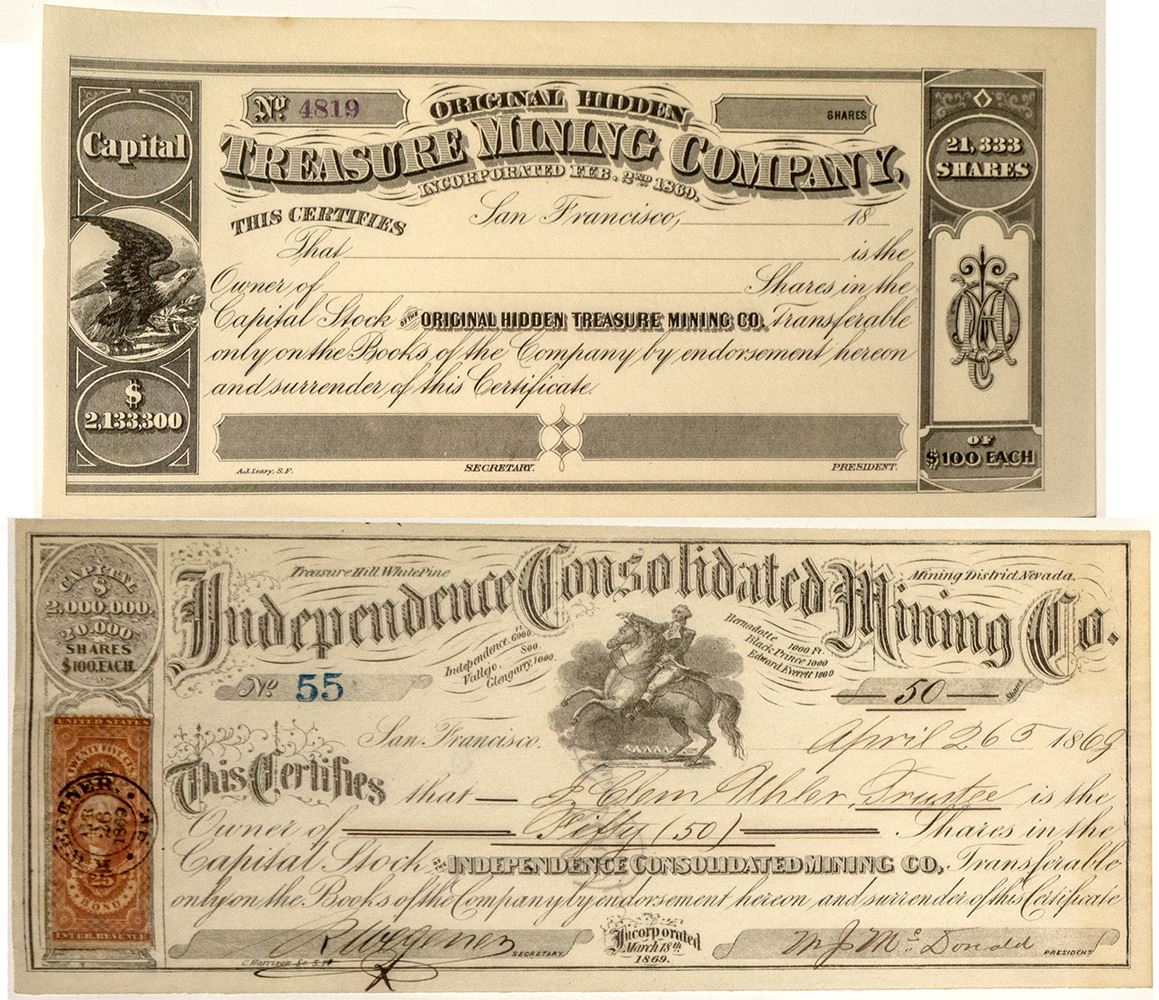 Nº 4819
ORIGINAL HIDDEN
SHARES
TREASURE MINING COMPANY,
INCORPORATED FEB. 2ND 1869.
Capital
$
2,133,300
21,333
SHARES
OF
$100 EACH
THIS CERTIFIES
San Francisco, 18
That is the
Owner of Shares in the
Capital Stock OF THE ORIGINAL HIDDEN TREASURE MINING CO. Transferable
only on the Books of the Company by endorsement hereon
and surrender of this Certificate.
A.J. Leary, S.F.
SECRETARY.
PRESIDENT.
CAPITAL
$
2,000,000.
20,000
SHARES
$100, EACH
Treasure Hill, White Pine
Mining District, Nevada.
Independence Consolidated Mining Co.
Independence 6000 ft.
Vallejo, 800
Glengarry, 1000
Bernadotte 1000 Ft.
Black Prince 1000
Edward Everett 1000
Nº 55
50 Shares
San Francisco, April 26 1869
This Certifies that J Clem Uhler, Trustee is the
Owner of Fifty (50) Shares in the
Capital Stock OF THE INDEPENDENCE CONSOLIDATED MINING CO, Transferable
only on the Books of the Company by endorsement hereon and surrender of this Certificate
UNITED STATES
TWENTY FIVE CTS
WEGENER.
APR
26
1869
25
BOND
INTER. REVENUE
R Wegener SECRETARY.
Incorporated
March 18th
1869.
M J McDonald PRESIDENT